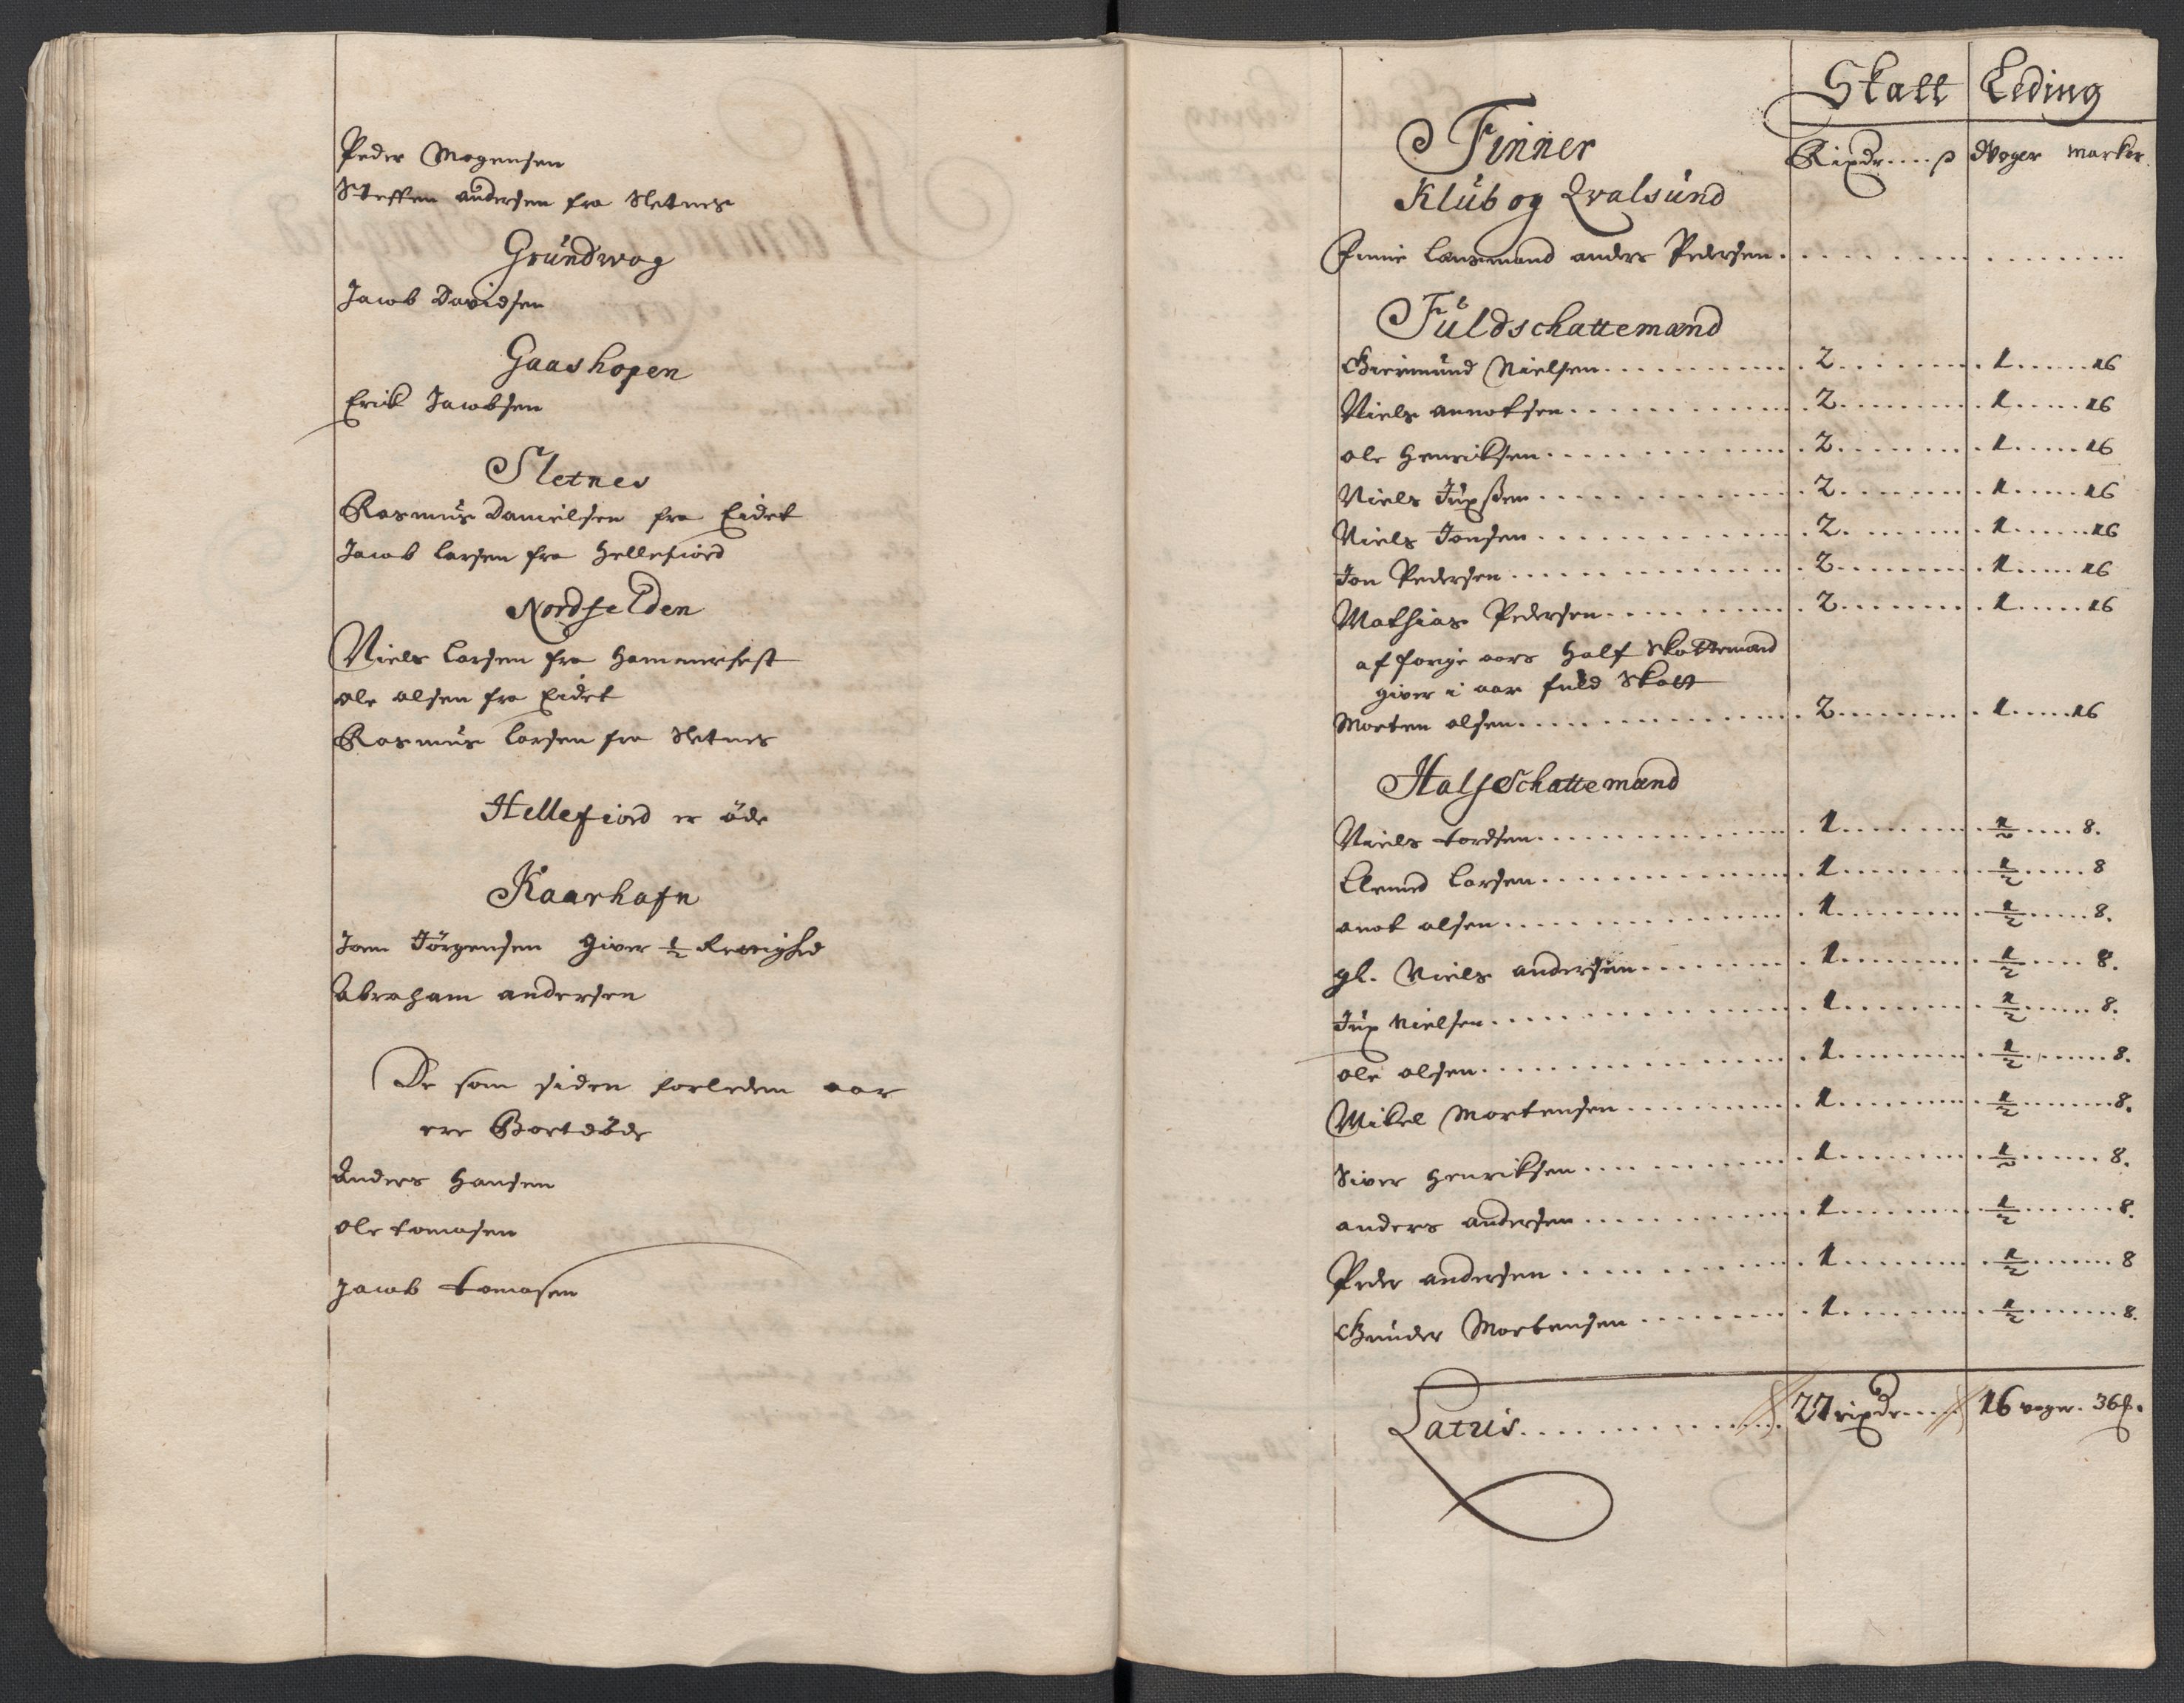 Peder Mogensen
Steffen andersen fra Sletnes
Grundwog
Jacob Davidsen
Gaashopen
Erick Jacobsen
Sletnes
Rasmus Danielsen fra Eidet
Jacob Larsen fra Hellefiord
Nordfelden
Niels Larsen fra Hammerfest
ole olsen fra Eidet
Rasmus Larsen fra Sletnes
Hellefiord er öde
Kaarhafn
Joen Jörgensen Giver 1/2 Rettighed
Abraham andersen
De som siden forleden aar
ere Bortdöde
Anders Hansen
ole tomasen
Jacob tomasen
Skatt Leding
Finner Rixdr.....s Woger marker.
Klub og Qvalsund
Finne Lansmand anders Pedersen. . . . . . . . . . . . . .
Fuldschattemænd
Giermund Nielsen............ 2......... 1......16
Niels annotsen............ 2......... 1.....16
ole Henriksen............ 2......... 1......16
Niels Jupsßen............ 2......... 1.....16
Niels Jonsen............ 2......... 1.......16
Jon Pedersen............ 2......... 1.....16
Mathias Pedersen............ 2......... 1.....16
af forige aars Half Skattemænd
giver i aar fuld Skatt
Morten olsen............ 2......... 1.....16
HalfSchattemænd
Niels tordsen............ 1......... 1/2.....8.
Clemed Larsen............ 1......... 1/2.....8
anot olsen............ 1......... 1/2.....8.
gl. Niels andersen............ 1......... 1/2.....8.
Jup Nielsen............ 1......... 1/2......8.
ole olsen............ 1......... 1/2.......8.
Mikel Mortensen............ 1......... 1/2.......8.
Siver Henriksen............ 1......... 1/2......8.
anders andersen............ 1......... 1/2.......8.
Peder andersen............ 1......... 1/2.......8
Gunder Mortensen............ 1......... 1/2.......8.
Latus............ 27 rixdr..... 16 woger. 36